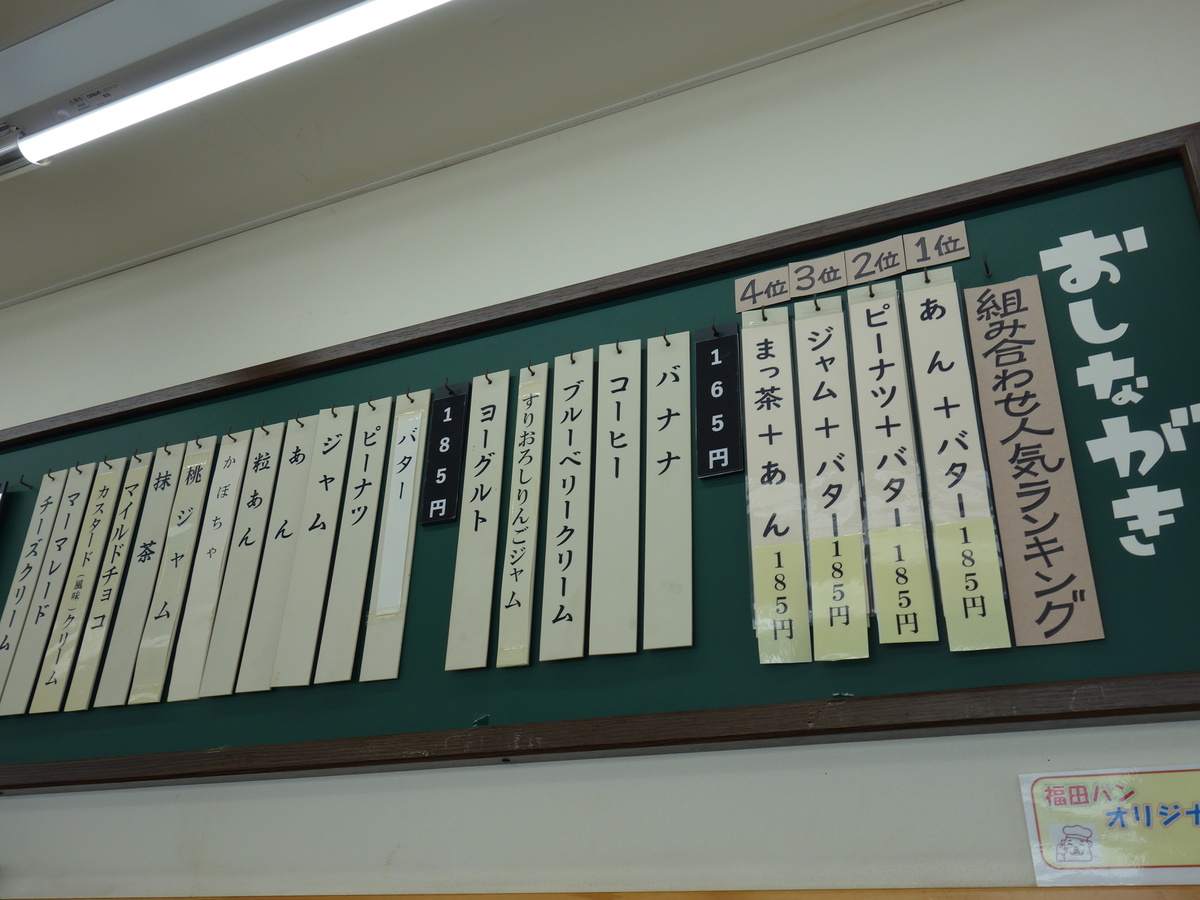 おしながき
組み合わせ人気ランキング
1位
あん＋バター185円
2位
ピーナツ＋バター185円
3位
ジャム＋バター185円
4位
まっ茶＋あん185円
165円
バナナ
コーヒー
ブルーベリークリーム
すりおろしりんごジャム
ヨーグルト
185円
バター
ピーナツ
ジャム
あん
粒あん
かぼちゃ
桃ジャム
抹茶
マイルドチョコ
カスタード(風味)クリーム
マーマレード
チーズクリーム
福田パン
オリジナ